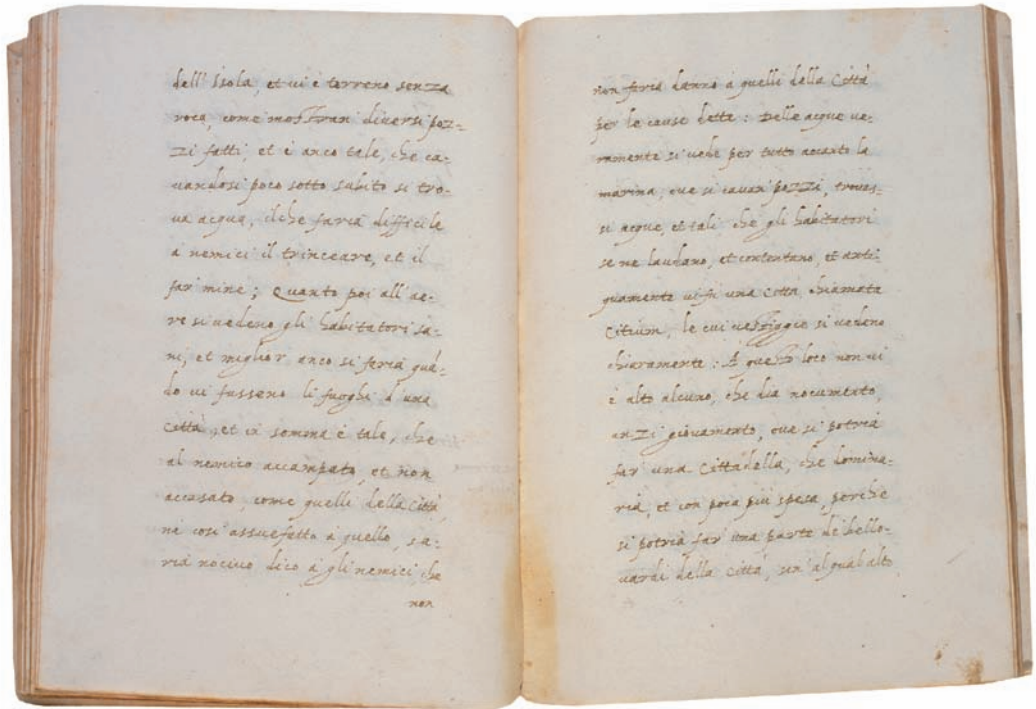 dell' Isola, et ui è terreno senza
roca, come mostran diuersi poz=
zi fatti, et è anco tale, che ca=
uandosi poco sotto subito si tro=
ua acqua, ilche faria difficile
a nemici il trinceare, et il
far mine; Quanto poi all' ae=
re si uedeno gli habitatori sa=
ni, et miglior anco si feria quã=
do ui fusseno li fuoghi d'una
Città, et in somma è tale, che
al nemico accampato, et non
accasato, come quelli della Città,
ne cosi assuefatto a quello, sa=
ria nociuo dico à gli nemici che
non
non faria danno à quelli della Città
per le cause dette: Delle acque ue=
ramente si uede per tutto accanto la
marina, oue si cauan pozzi, troues=
si acque, et tali, che gli habitatori
se ne laudano, et contentano, et anti=
quamente ui fu una Città chiamata
Citium, le cui uestiggie si uedeno
chiaramente: A questo loco non ui
è alto alcuno, che dia nocumento,
anzi giouamento, oue si potria
far una Cittadella, che domina=
ria, et con poca più spesa, perche
si potria far una parte de bello=
uardi della Città, un' al qual alto